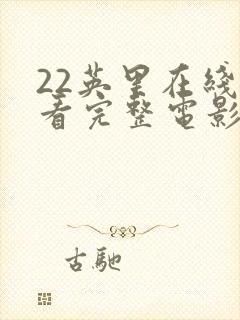 22英里在綫
看完整電影
古馳